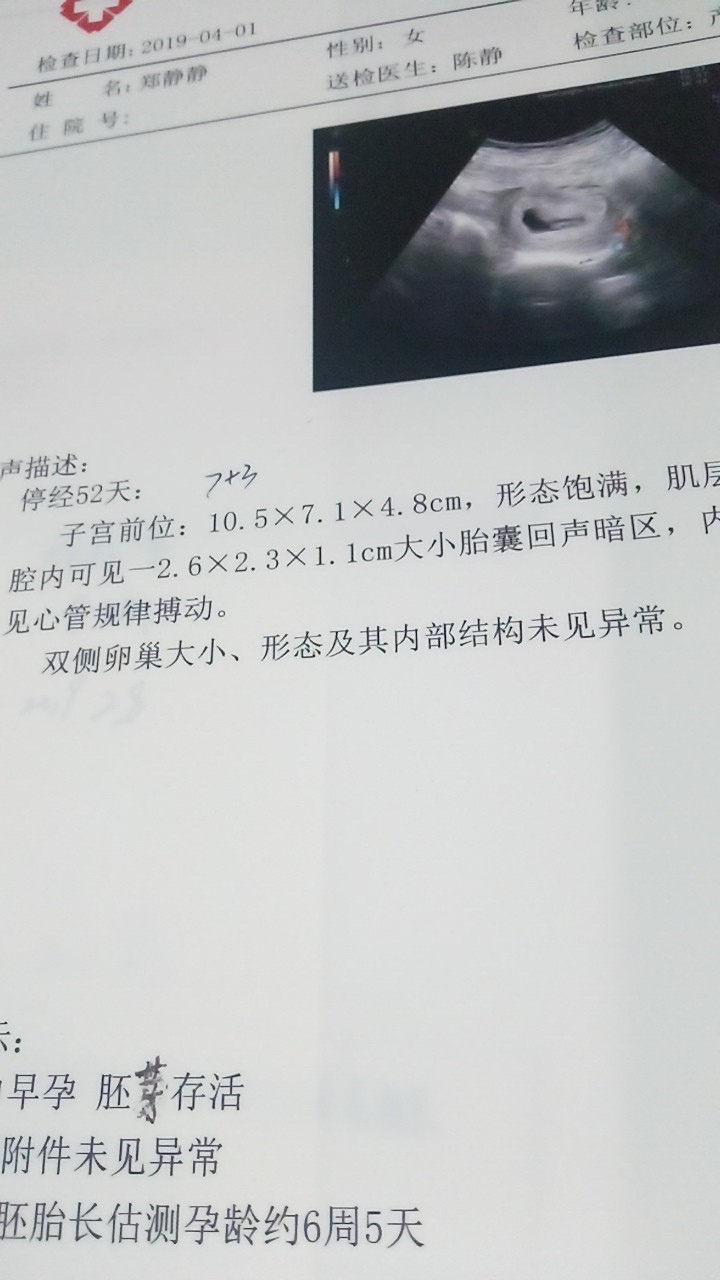 检查日期: 2019-04-01
姓 名: 郑静静
性别: 女
年龄:
住 院 号:
送检医生: 陈静
检查部位:
声描述:
停经52天: 7+3
子宫前位: 10.5×7.1×4.8cm, 形态饱满, 肌层
腔内可见一2.6×2.3×1.1cm大小胎囊回声暗区, 内
见心管规律搏动。
双侧卵巢大小、形态及其内部结构未见异常。
示:
早孕 胚芽存活
附件未见异常
胚胎长估测孕龄约6周5天